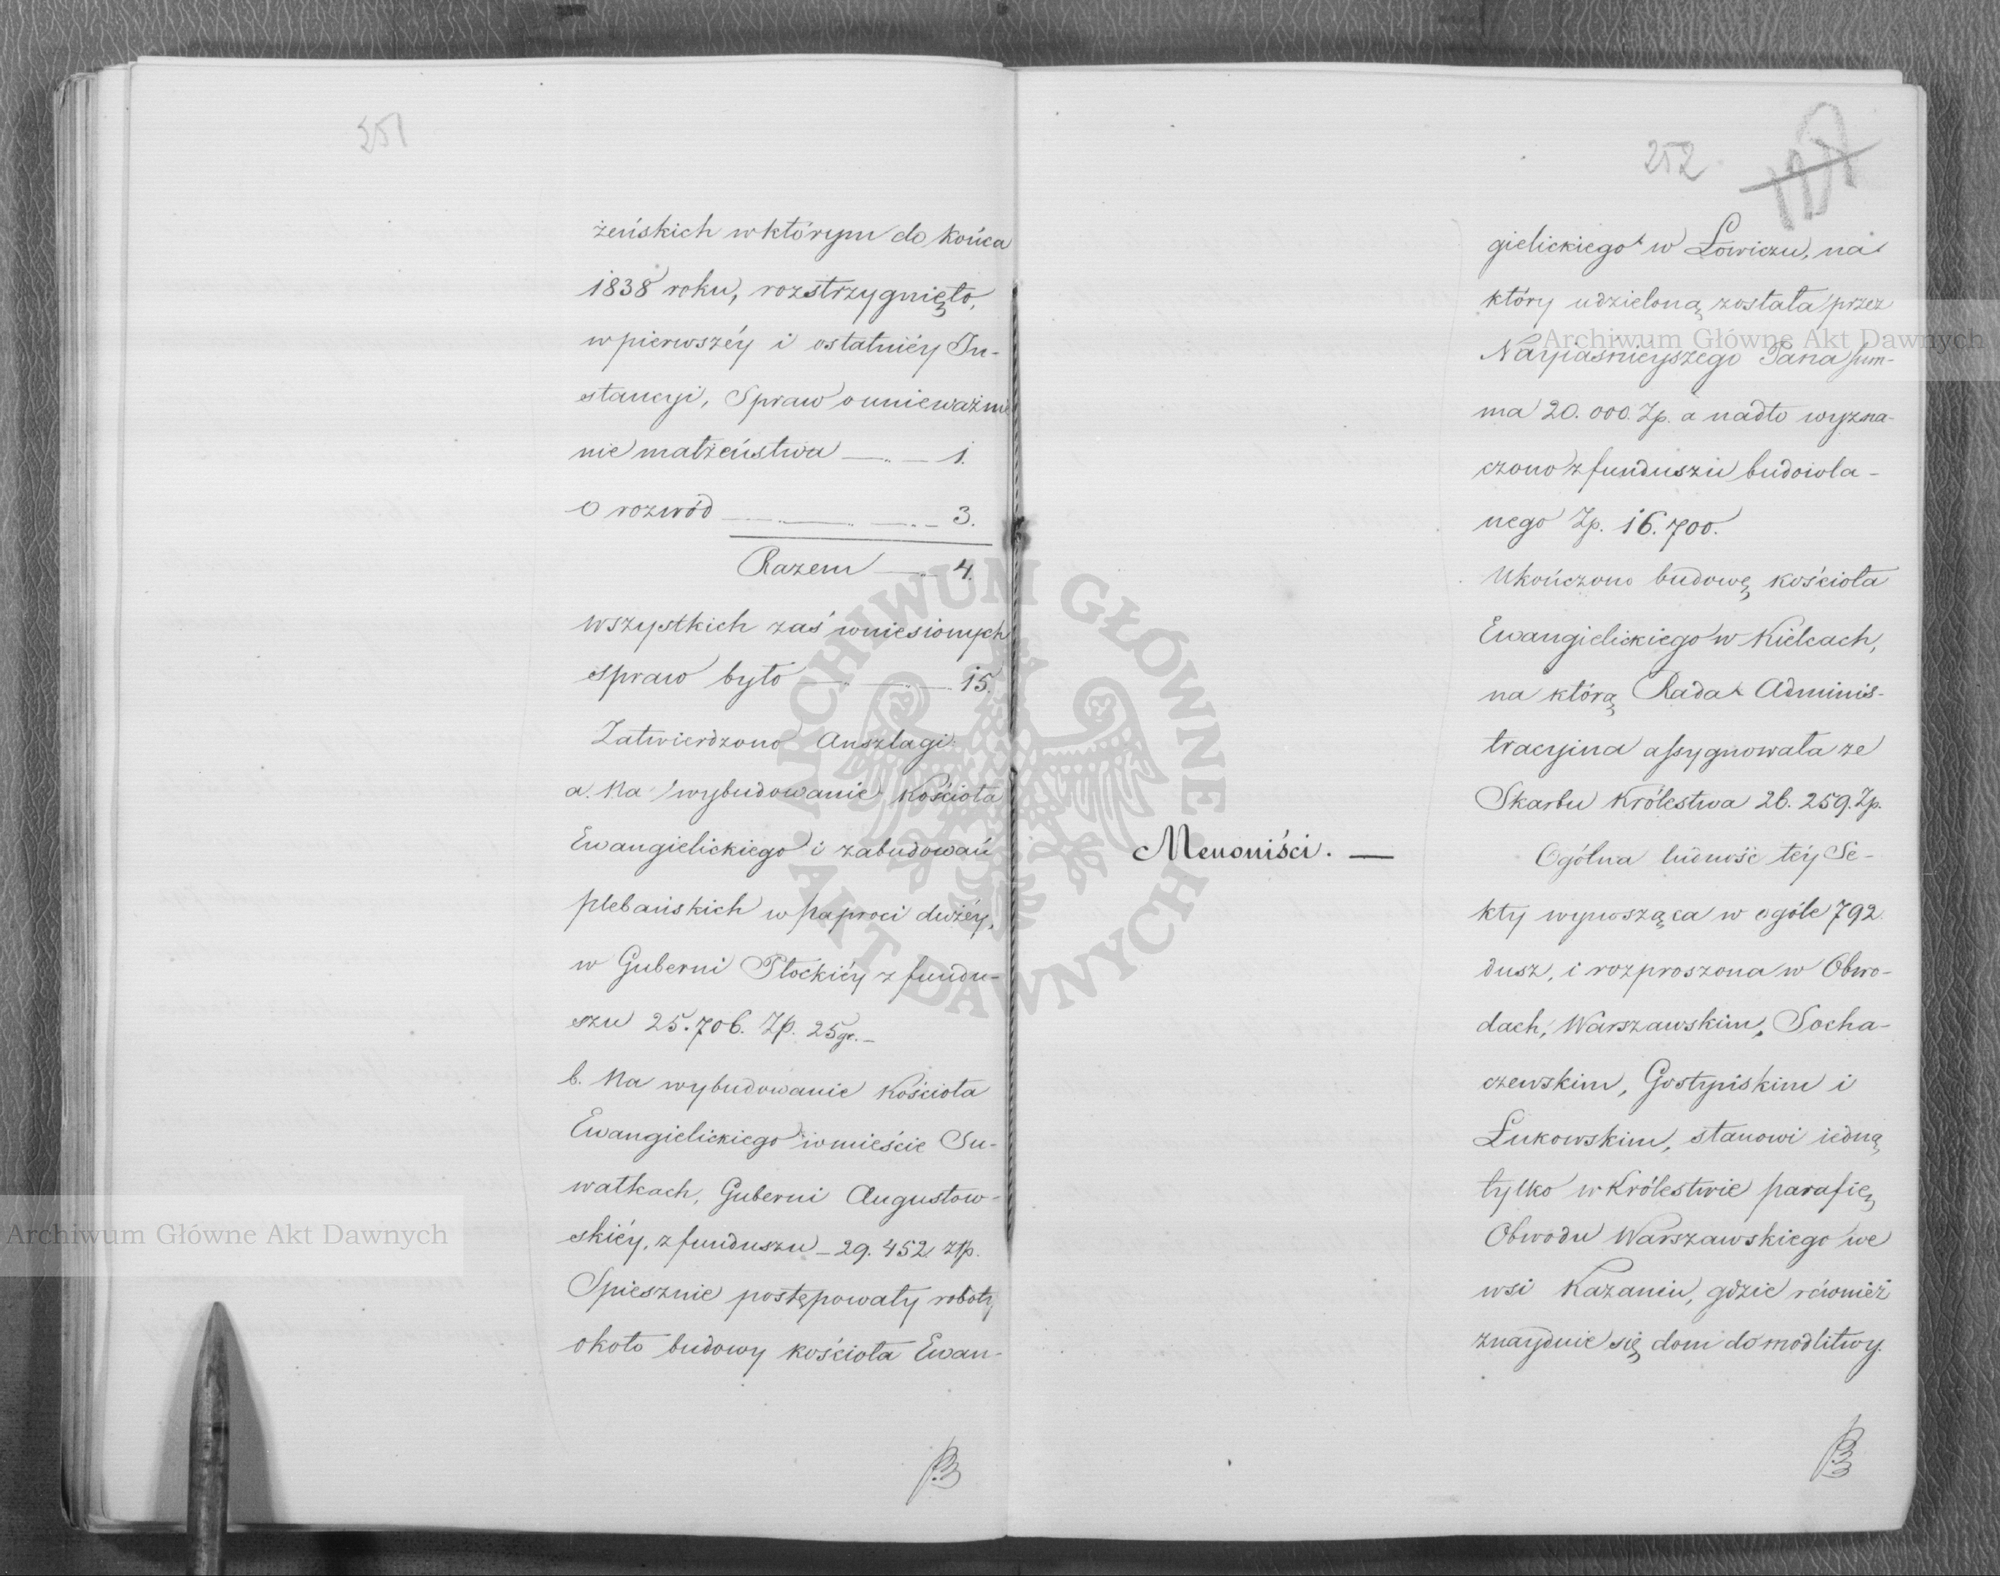 251
żeńskich w którym do końca
1838 roku, rozstrzygnięto,
w pierwszéy i ostatniéy In-
stancyi, Spraw o unieważnie
nie małżeństwa — 1.
O rozwód — 3.
Razem — 4.
Wszystkich zaś wniesionych
spraw było — 15.
Zatwierdzono Anszlagi:
a. Na wybudowanie Kościoła
Ewangielickiego i zabudowań
plebańskich w Paproci dużéy,
w Guberni Płockiéy z fundu-
szu 25.706. Zp. 25 gr. —
b. Na wybudowanie Kościoła
Ewangielickiego w mieście Su-
wałkach, Guberni Augustow-
skiéy, z funduszu — 29.452 złp.
Spiesznie postępowały roboty
około budowy kościoła Ewan-
252
gielickiego w Łowiczu, na
który udzieloną została przez
Nayjaśnieyszego Pana sum-
ma 20.000. Zp. a nadto wyzna-
czono z funduszu budowla-
nego Zp. 16.700.
Ukończono budowę kościoła
Ewangielickiego w Kielcach,
na którą Rada Adminis-
tracyina assygnowała ze
Skarbu Królestwa 26.259. Zp.
Menoniści. —
Ogólna ludność téy Se-
kty wynosząca w ogóle 792.
dusz, i rozproszona w Obwo-
dach, Warszawskim, Socha-
czewskim, Gostyńskim i
Łukowskim, stanowi iedną
tylko w Królestwie parafię
Obwodu Warszawskiego we
wsi Kazaniu, gdzie również
znayduie się dom do modlitwy.
Archiwum Główne Akt Dawnych
Archiwum Główne Akt Dawnych
ARCHIWUM GŁÓWNE AKT DAWNYCH